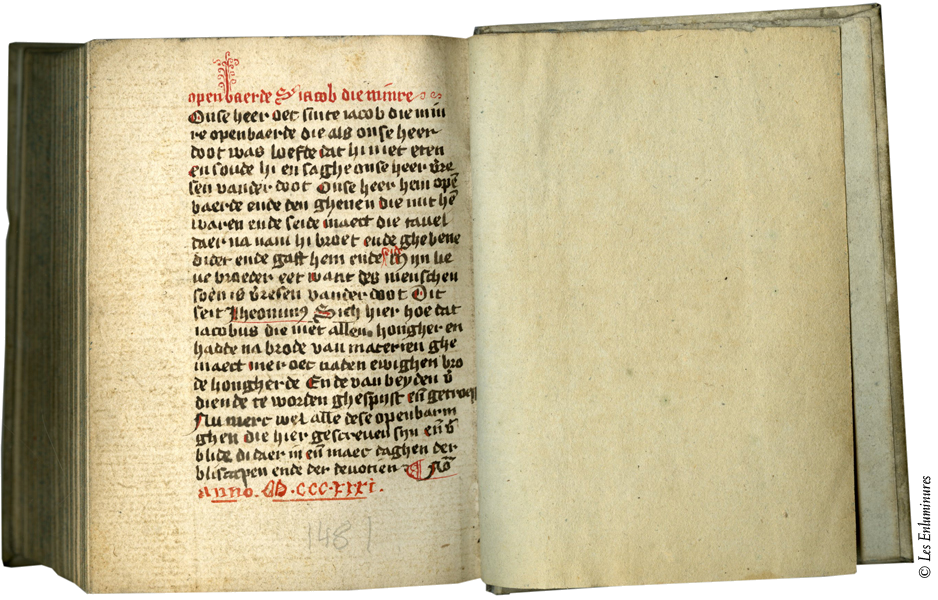 openbaerde S iacob die minre
Onse heer oec sinte iacob die min
re openbaerde die als onse heer
doot was loefde dat hi niet eten
en soude hi en saghe onse heer v̄re
sen vander doot Onse heer hem opē
baerde ende den ghenen die mit hē
waren ende seide maect die tauel
daer na nam hi broet ende ghebene
didet ende gaff hem ende seide Mijn lie
ue broeder eet want des menschen
soen is v̄resen vander doot Dit
seit Iheronimus Sich hier hoe dat
iacobus die niet allen hongher en
hadde na brode van materien ghe
maect mer oec naden ewighen bro
de hongherde Ende van beyden v̄
diende te worden ghespijst en̄
Nu merc wel alle dese openbarin
ghen die hier gescreuen sijn en̄ v̄
blide di daer in en̄ maec daghen der
bliscapen ende der deuocien
Anno. M.CCCC.XXXI.
1481
© Les Enluminures